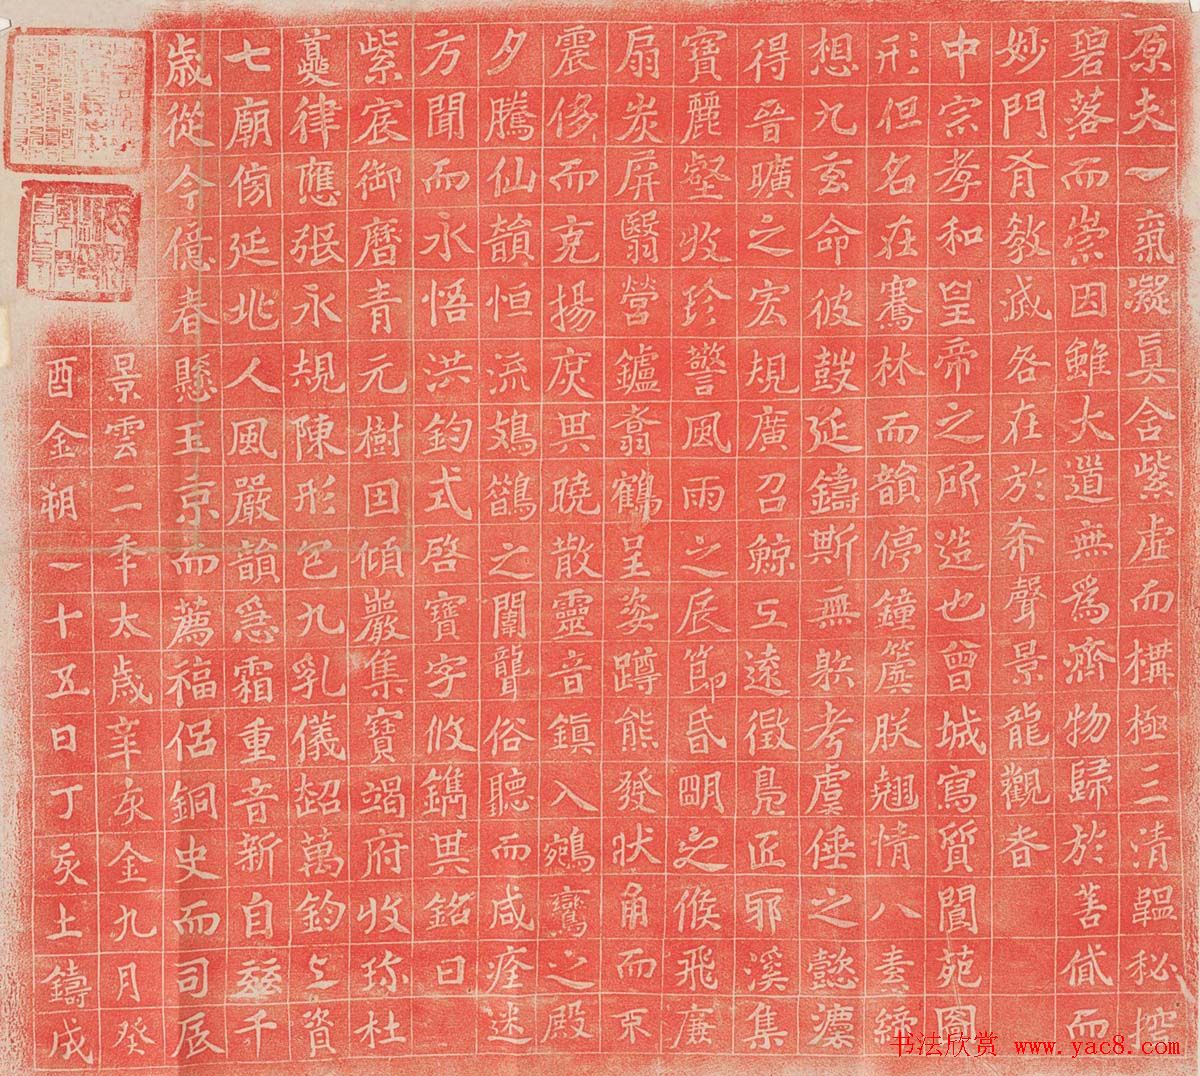 原夫一氣凝眞含紫虛而構極三清韞秘控
碧落而崇因雖大道無爲濟物歸於善貸而
妙門有教滅咎在於希聲景龍觀者
中宗孝和皇帝之所造也曾城寫質閬苑圖
形但名在騫林而韻停鐘簴朕翹情八素締
想九玄命彼鼓延鑄斯無射考虞倕之懿灋
得晉曠之宏規廣召鯨工遠徵鳧匠耶溪集
寶麗壑收珍警風雨之辰節昏明之候飛廉
扇炭屏翳營鑪翥鶴呈姿蹲熊發狀角而不
震侈而克揚庶其曉散靈音鎮入鵷鸞之殿
夕騰仙韻恒流鳷鵲之闈聾俗聽而咸痊迷
方聞而永悟洪鈞式啓寶字攸鐫其銘曰
紫宸御曆青元樹因傾巖集寶竭府收珍杜
夔律應張永規陳形包九乳儀超萬鈞上資
七廟傍延兆人風嚴韻急霜重音新自茲千
歲從今億春懸玉京而薦福侶銅史而司辰
景雲二年太歲辛亥金九月癸
酉金朔一十五日丁亥土鑄成
书法欣赏 www.yac8.com